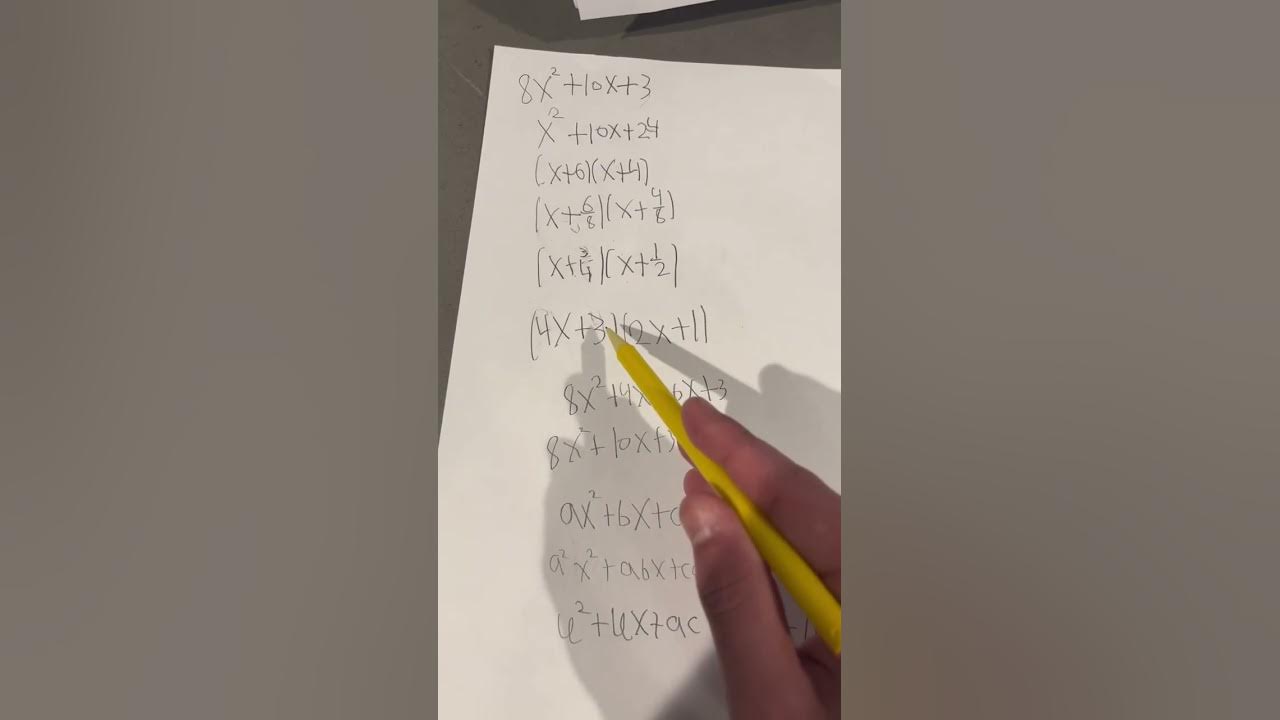 8x²+10x+3
x²+10x+24
(x+6)(x+4)
(x+6/8)(x+4/8)
(x+3/4)(x+1/2)
(4x+3)(2x+1)
8x²+4x 6x+3
8x²+10x+3
ax²+bx+c
a²x²+abx+c
u²+ux+ac